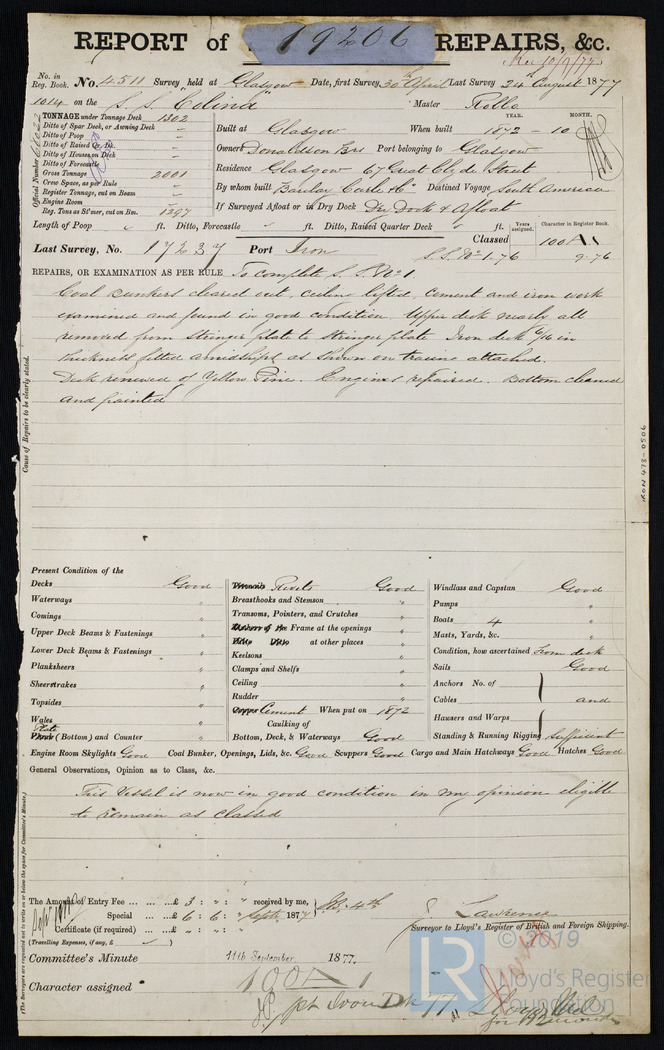 REPORT of 19206 REPAIRS, &c.
Rec 10/9/77
No. in Reg. Book. No. 4511 Survey held at Glasgow Date, first Survey 30th April Last Survey 24th August 1877
1014 on the S. S. "Colina" Master Rollo
TONNAGE under Tonnage Deck 1302
Ditto of Spar Deck, or Awning Deck "
Ditto of Poop "
Ditto of Raised Qr. Dk. "
Ditto of Houses on Deck "
Ditto of Forecastle "
Gross Tonnage 2001
Crew Space, as per Rule "
Register Tonnage, cut on Beam
Engine Room "
Reg. Tons as St'mer, cut on Bm. 1297
Official Number
Built at Glasgow When built YEAR. 1872 - MONTH. 10
Owners Donaldson Bros Port belonging to Glasgow
Residence Glasgow 67 Great Clyde Street
By whom built Barclay Curle & Co Destined Voyage South America
If Surveyed Afloat or in Dry Dock Dry Dock & Afloat
Length of Poop " ft. Ditto, Forecastle " ft. Ditto, Raised Quarter Deck " ft.
Years assigned. Character in Register Book.
Last Survey, No. 17237 Port Iron Classed 100A1
S.S. No 1-76 9.76
REPAIRS, OR EXAMINATION AS PER RULE To complete S. S. No 1
Coal Bunkers cleared out, ceiling lifted, cement and iron work
examined and found in good condition. Upper deck nearly all
removed from stringer plate to stringer plate Iron deck 6/16 in
thickness fitted amidships as shown on tracing attached.
Deck renewed of Yellow Pine. Engines repaired. Bottom cleaned
and painted
Cause of Repairs to be clearly stated.
IRON 473-0506
Present Condition of the
Decks Good
Waterways "
Comings "
Upper Deck Beams & Fastenings "
Lower Deck Beams & Fastenings "
Planksheers "
Sheerstrakes "
Topsides "
Wales "
Plate (Bottom) and Counter "
Rivets Good
Breasthooks and Stemson "
Transoms, Pointers, and Crutches "
Frame at the openings "
Ditto Ditto at other places "
Keelsons "
Clamps and Shelfs "
Ceiling "
Rudder "
Cement When put on 1872
Caulking of
Bottom, Deck, & Waterways Good
Windlass and Capstan Good
Pumps "
Boats 4 "
Masts, Yards, &c. "
Condition, how ascertained From deck
Sails Good
Anchors No. of
Cables and
Hawsers and Warps
Standing & Running Rigging Sufficient
Engine Room Skylights Good Coal Bunker, Openings, Lids, &c. Good Scuppers Good Cargo and Main Hatchways Good Hatches Good
General Observations, Opinion as to Class, &c.
This Vessel is now in good condition in my opinion eligible
to remain as classed
The Amount of Entry Fee ... ... £ 3 : " : " received by me,
Special ... £ 6 : 6 : " Septr 1877
Certificate (if required) ... £ " : " : "
(Travelling Expenses, if any, £ )
J. Lawrence
Surveyor to Lloyd's Register of British and Foreign Shipping.
Committee's Minute 11th September 1877.
Character assigned 100A1
pt Iron Dk 77
(The Surveyors are requested not to write on or below the space for Committee's Minute.)
© 2019
LR Lloyd's Register
Foundation